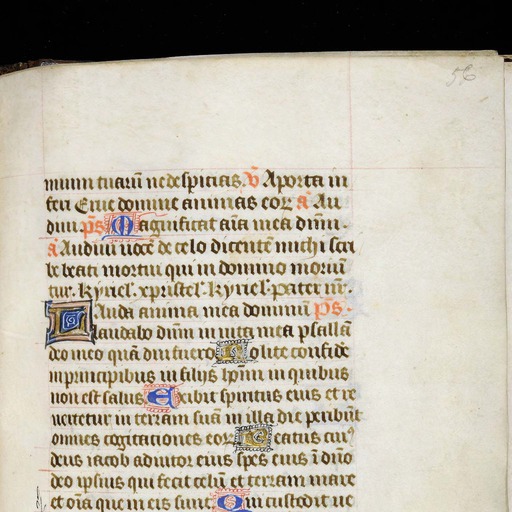 56
muum tuarū ne despicias. v̄ Aporta in
feri Erue domine animas eor̄ a̅ Au
diui. p̄s Magnificat aīa mea dn̄m.
a̅ Audiui uocē de celo dicentē michi scri
be beati mortui qui in domino moriūn
tur. kyriel. xpristel. kyriel. pater nr̄.
Lauda anima mea dominū p̄s.
laudabo dn̄m in uita mea psallā
deo meo quā diu fuero Nolite confide
in principibus in filijs hoīm in quibus
non est salus Exibit spiritus eius et re
uertetur in terram suā in illa die peribūt
omnes cogitaciones eor̄ Beatus cuiꝰ
deus iacob adiutor eius spes eius ī dn̄o
deo ipsius qui fecit celū et terram mare
et oīa que in eis sunt Qui custodit ue